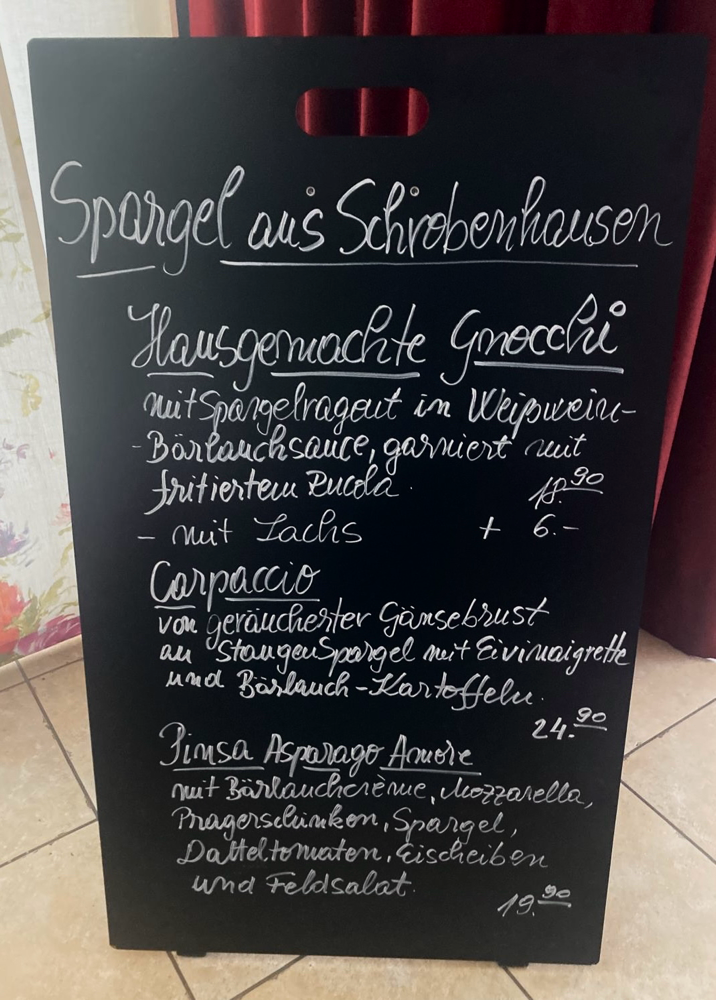 Spargel aus Schrobenhausen
Hausgemachte Gnocchi
mit Spargelragout in Weißwein-
-Bärlauchsauce, garniert mit
fritiertem Rucola. 18.90
- mit Lachs + 6.-
Carpaccio
von geräucherter Gänsebrust
an StangenSpargel mit Eivinaigrette
und Bärlauch-Kartoffeln.
24.90
Pinsa Asparago Amore
mit Bärlauchcrème, Mozzarella,
Pragerschinken, Spargel,
Datteltomaten, Eischeiben
und Feldsalat.
19.90